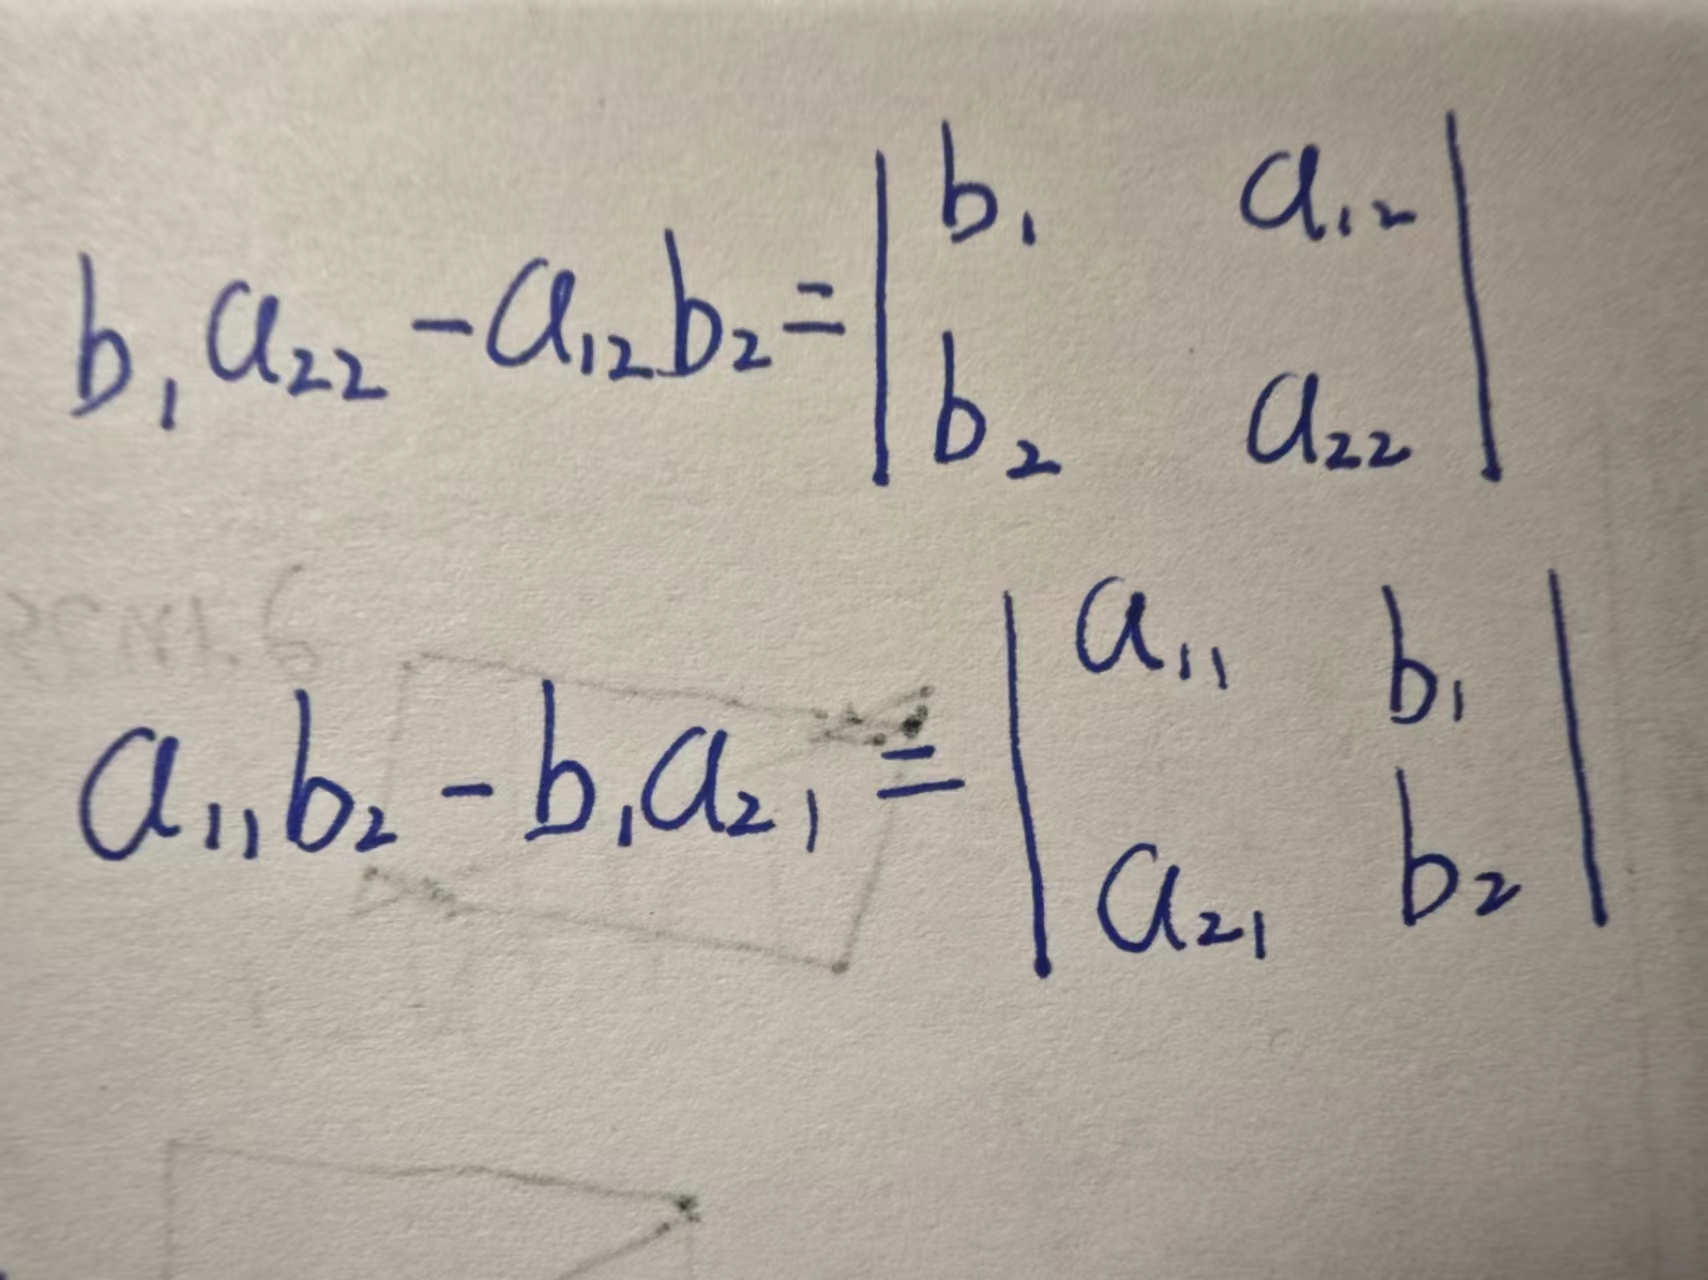 b₁a₂₂-a₁₂b₂=|b₁ a₁₂|
|b₂ a₂₂|
a₁₁b₂-b₁a₂₁=|a₁₁ b₁|
|a₂₁ b₂|